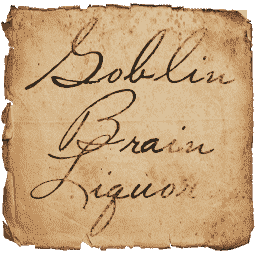 Goblin
Brain
Liquor